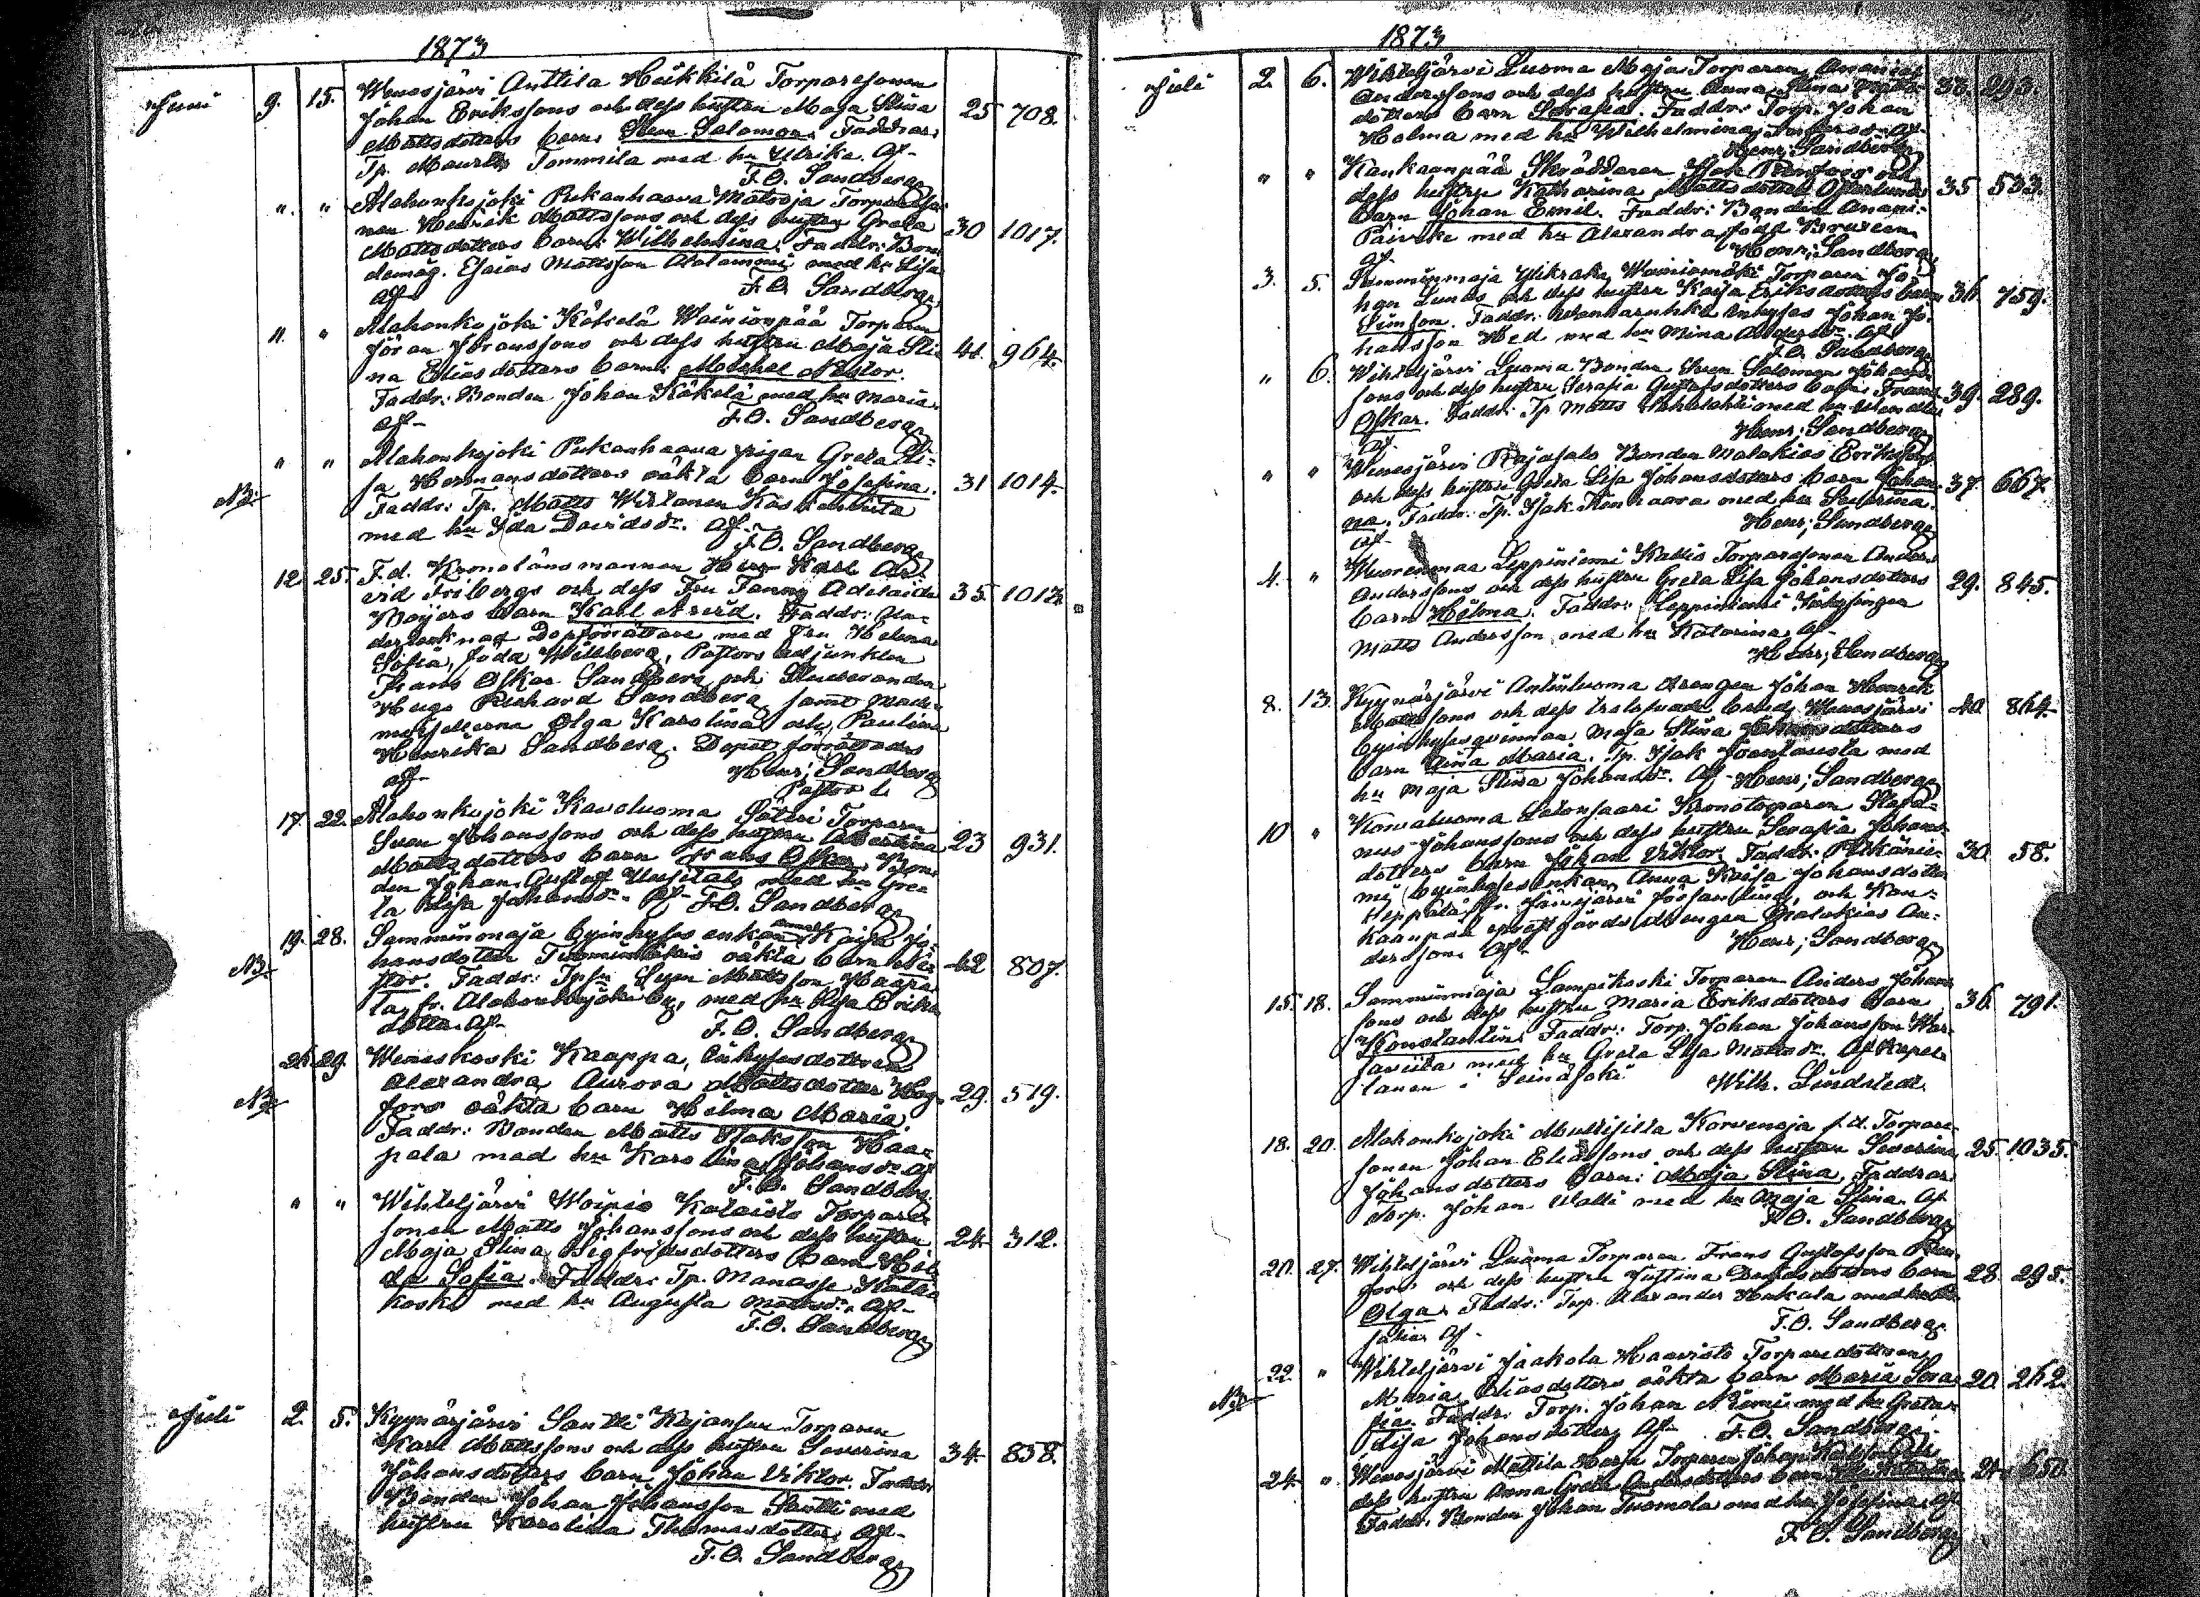 1873
Juni 9. 15. Wenesjärvi Anttila Heikkilä Torparesonen
Johan Erikssons och dess hustru Maja Stina 25 708.
Mattsdotters barn: Sven Salomon. Faddrar:
Tp. Maurits Tommila med hu Ulrika. Af-
F.O. Sandberg
" " Alahonkajoki Pukanhaara Torpare
nen Henrik Mattssons och dess hustru Greta 30 1017.
Mattsdotters barn: Wilhelmina. Faddr: Bon
demåg. Esaias Mattsson Alalammi med hu Lisa
af- F.O. Sandberg
" " Alahonkajoki Käkelä Wainionpää Torparen
Jöran Jöranssons och dess hustru Maja Sti- 41. 964.
na Eliasdotters barn: Mikkel Nestor.
Faddr: Bonden Johan Käkelä med hu Maria.
af- F.O. Sandberg
" " Alahonkajoki Pukanhaara pigan Greta Li-
NB: sa Hermansdotters oäkta barn Josefina. 31 1014.
Faddr: Tp. Matts Wirtanen
med hu Ida Davidsdr. af. F.O. Sandberg
12. 25. F.d. Kronolänsmannen Herr Karl Ar-
vid Fribergs och dess Fru Fanny Adelaide 35. 1012.
barn Karl Arvid. Faddr: Un-
dertecknad Dopförrättare med Fru Helena
Sofia, född Willberg, Pastors adjunkten
Frans Oskar Sandberg och Studeranden
Hugo Richard Sandberg samt Made-
moisellerna Olga Karolina och Paulina
Henrika Sandberg. Dopet förrättades
af- Henr; Sandberg
Pastor l.
17. 22. Alahonkajoki Kavoluoma Torparen
Sven Johanssons och dess hustru Albertina 23 931.
Mattsdotters barn Frans Oskar. Bon
den Johan Gustaf Uusitalo med hu Gre-
ta Lisa Johansdr. Af- F.O. Sandberg
19. 28. Samminmaja Byinhyses enkan Anna Kaisa Jo-
NB. hansdotter oäkta barn Ne- 42 807.
stor. Faddr: Tpsn Sven Mattsson Haapa-
la, fr. Alahonkajoki by, med hu Lisa Eriks
dotter. Af- F.O. Sandberg
26. 29. Weneskoski Kaappa, Inhysesdottren
Alexandra Aurora Mattsdotter Hag-
NB fors oäkta barn Hilma Maria. 29. 519.
Faddr: Bonden Matts Isaksson Haa-
pala med hu Karolina Johansdr. Af
F.O. Sandberg
" " Wihteljärvi Woipio Kataisto Torpare
sonen Matts Johanssons och dess hustru
Maja Stina Segfridsdotters barn Hil- 24 312.
da Sofia. Faddr: Tp. Manasse Katta
koski med hu Augusta Mattsdr. Af-
F.O. Sandberg
Juli 2. 5. Kyynärjärvi Santti Kajansuu Torparen
Karl Mattssons och dess hustru Severina 34. 858.
Johansdotters barn Johan Viktor. Faddr:
Bonden Johan Johansson Santti med
hustru Karolina Thomasdotter. Af-
F.O. Sandberg
1873
Juli 2. 6. Wihteljärvi Luoma Maja Torparen Ananias
Anderssons och dess hustru Anna Stina 33. 293.
dotters barn Serafia. Faddr: Torp. Johan
Holma med hu Wilhelmina af-
Henr; Sandberg
" " Kankaanpää Skräddaren Isak Renfors och
dess hustru Katharina Mattsdotter Österlunds 35 533.
barn Johan Emil. Faddr: Bonden Anani-
Päivike med hu Alexandra född Bruseen
af. Henr; Sandberg
3. 5. Samminmaja Torparen Jo-
han Lunds och dess hustru Kaisa Eriksdotters barn 36. 759.
Simson. Faddr: Inhyses Johan Jo-
hansson Hed med hu Mina Andersdr. Af
F.O. Sandberg
" 6. Wihteljärvi Luoma Bonden Sven Salomon Johans
sons och dess hustru Serafia Gustafsdotters barn: Frans 39. 289.
Oskar. Faddr: Tp Matts med hu
af. Henr; Sandberg
" " Wenesjärvi Rajasalo Bonden Malakias Eriksson
och dess hustru Greta Lisa Johansdotters barn Johan- 37. 667.
na. Faddr: Tp. Isak Konhaara med hu Severina.
af- Henr; Sandberg
4. " Wuorenmaa Leppiniemi Kallio Torparesonen Anders
Anderssons och dess hustru Greta Lisa Johansdotters 29. 845.
barn Hilma. Faddr: Leppiniemi
Matts Andersson med hu Katarina. Af-
Henr; Sandberg
8. 13. Kyynärjärvi Anttiluoma drengen Johan Henrik
Mattssons och dess trolofvade brud, Wenesjärvi 40. 864.
byinhysesqvinnan Maja Stina Johansdotters
barn Tina Maria. Tp. Isak med
hu Maja Stina Johansdr. Af- Henr; Sandberg
10 " Korvaluoma Lalonsaari Kronotorparen Stefa-
nus Johanssons och dess hustru Serafia Johans- 30. 58.
dotters barn Johan Viktor. Faddr:
byinhysesenkan Anna Kaisa Johansdotter
och Kan-
kaanpää drengen Malakias An-
dersson. Af- Henr; Sandberg
15. 18. Samminmaja Lampikoski Torparen Anders Johans
sons och dess hustru Maria Eriksdotters barn 36. 791.
Konstantin. Faddr: Torp. Johan Johansson War-
saviita med hu Greta Lisa Mattsdr. Af Kapel-
lanen i Seinäjoki Wilh. Lindstedt.
18. 20. Alahonkajoki Korvenoja f.d. Torpare-
sonen Johan Eliassons och dess hustru Severina 25. 1035.
Johansdotters barn: Maja Stina. Faddrar
Torp. Johan Walli med hu Maja Stina. Af
F.O. Sandberg
20. 27. Wihteljärvi Luoma Torparen Frans Gustafsson
fors och dess hustru Justina barn 28. 295.
Olga. Faddr: Torp. Alexander Hakala med hu
af- F.O. Sandberg.
22. " Wihteljärvi Jaakola Haavisto Torparedottren
NB. Maria Eliasdotters oäkta barn Maria Sera- 20. 262.
fia. Faddr. Torp. Johan Niemi med hu Greta
Lisa Johansdotter. Af- F.O. Sandberg
24. " Wenesjärvi Mattila Harju Torparen Johan
dess hustru Anna Greta Andersdotters barn 24 650
Faddr. Bonden Johan Tuomola med hu Josefina. Af
F.O. Sandberg